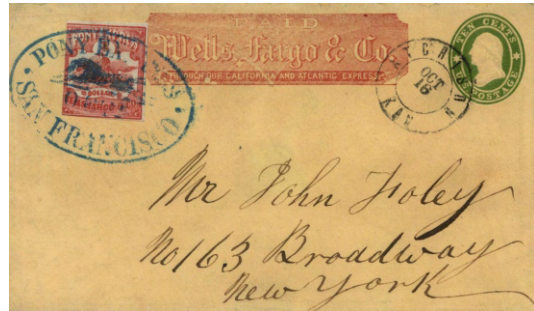 PAID
Wells, Fargo & Co.
THROUGH OUR CALIFORNIA AND ATLANTIC EXPRESS
PONY EXPRESS
SAN FRANCISCO
TEN CENTS
U.S. POSTAGE
OCT
16
KAN
Mr John Foley
No 163 Broadway
New York